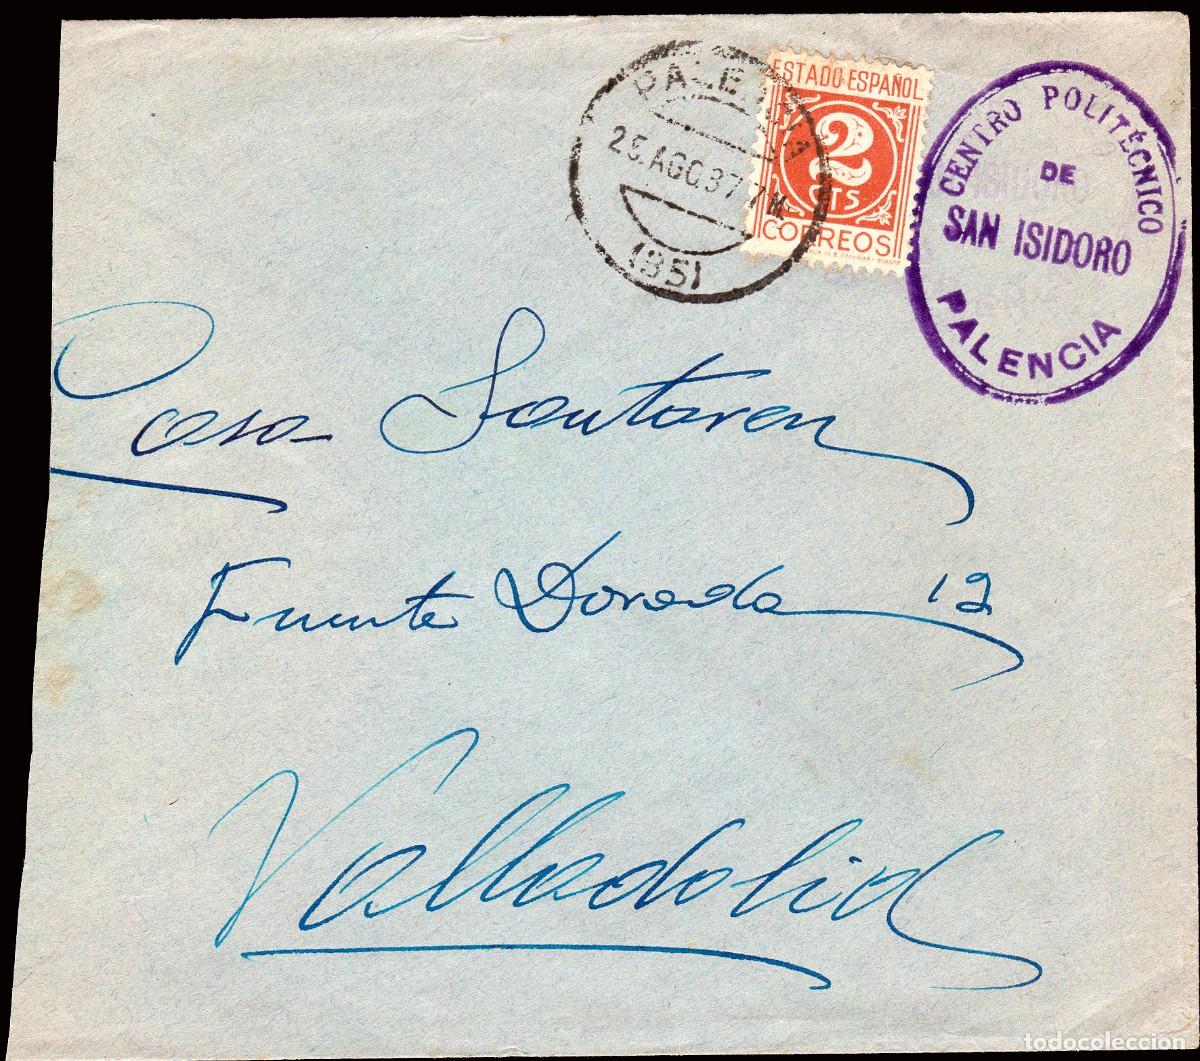 PALENCIA
25.AGO.37.7M.
(95)
ESTADO ESPAÑOL
2
CTS
CORREOS
CENTRO POLITÉCNICO
DE
SAN ISIDORO
PALENCIA
Casa Santaren
Fuente Dorada 12
Valladolid
todocoleccion